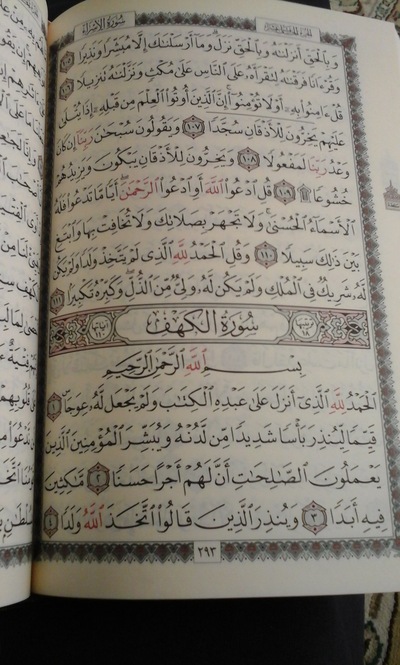 سُورَةُ الإِسْرَاءِ
وَبِالْحَقِّ أَنزَلْنَاهُ وَبِالْحَقِّ نَزَلَ وَمَا أَرْسَلْنَاكَ إِلَّا مُبَشِّرًا وَنَذِيرًا ١٠٥
وَقُرْءَانًا فَرَقْنَاهُ لِتَقْرَأَهُ عَلَى النَّاسِ عَلَىٰ مُكْثٍ وَنَزَّلْنَاهُ تَنزِيلًا ١٠٦
قُلْ ءَامِنُوا بِهِ أَوْ لَا تُؤْمِنُوا إِنَّ الَّذِينَ أُوتُوا الْعِلْمَ مِن قَبْلِهِ إِذَا يُتْلَىٰ
عَلَيْهِمْ يَخِرُّونَ لِلْأَذْقَانِ سُجَّدًا ١٠٧ وَيَقُولُونَ سُبْحَٰنَ رَبِّنَا إِن كَانَ
وَعْدُ رَبِّنَا لَمَفْعُولًا ١٠٨ وَيَخِرُّونَ لِلْأَذْقَانِ يَبْكُونَ وَيَزِيدُهُمْ
خُشُوعًا ۩ ١٠٩ قُلِ ادْعُوا اللَّهَ أَوِ ادْعُوا الرَّحْمَٰنَ أَيًّا مَّا تَدْعُوا فَلَهُ
الْأَسْمَاءُ الْحُسْنَىٰ وَلَا تَجْهَرْ بِصَلَاتِكَ وَلَا تُخَافِتْ بِهَا وَابْتَغِ
بَيْنَ ذَٰلِكَ سَبِيلًا ١١٠ وَقُلِ الْحَمْدُ لِلَّهِ الَّذِي لَمْ يَتَّخِذْ وَلَدًا وَلَمْ يَكُن
لَّهُ شَرِيكٌ فِي الْمُلْكِ وَلَمْ يَكُن لَّهُ وَلِيٌّ مِّنَ الذُّلِّ وَكَبِّرْهُ تَكْبِيرًا ١١١
سُورَةُ الكَهْفِ
بِسْمِ اللَّهِ الرَّحْمَٰنِ الرَّحِيمِ
الْحَمْدُ لِلَّهِ الَّذِي أَنزَلَ عَلَىٰ عَبْدِهِ الْكِتَٰبَ وَلَمْ يَجْعَل لَّهُ عِوَجًا ١
قَيِّمًا لِّيُنذِرَ بَأْسًا شَدِيدًا مِّن لَّدُنْهُ وَيُبَشِّرَ الْمُؤْمِنِينَ الَّذِينَ
يَعْمَلُونَ الصَّٰلِحَٰتِ أَنَّ لَهُمْ أَجْرًا حَسَنًا ٢ مَّٰكِثِينَ
فِيهِ أَبَدًا ٣ وَيُنذِرَ الَّذِينَ قَالُوا اتَّخَذَ اللَّهُ وَلَدًا ٤
٢٩٣